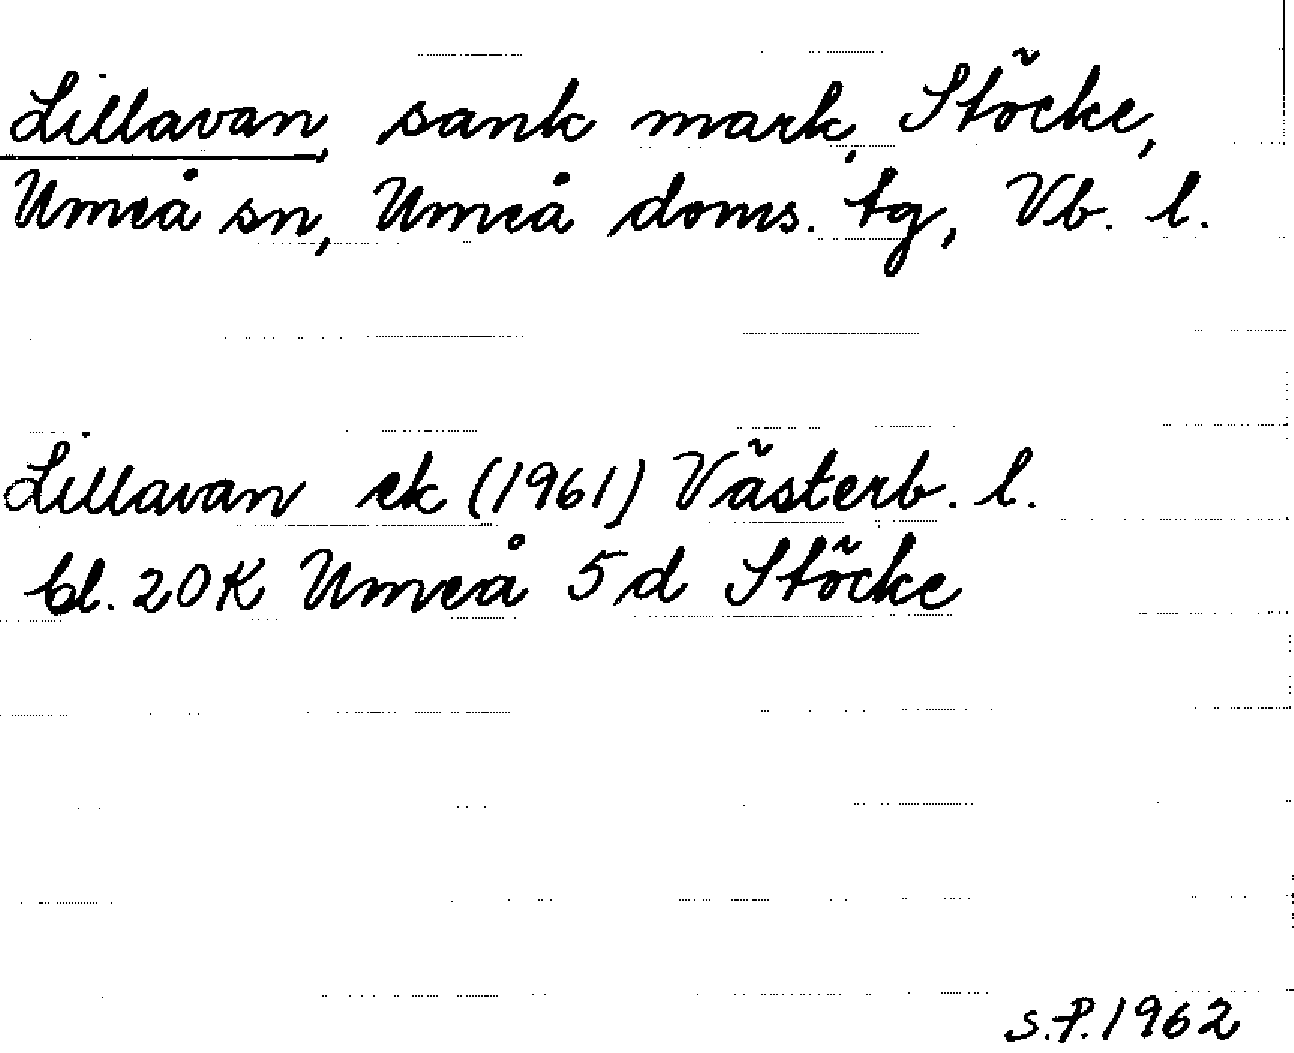 Lillavan, sank mark, Stöcke,
Umeå sn, Umeå doms. tg, Vb. l.
Lillavan ek (1961) Västerb. l.
bl. 20K Umeå 5d Stöcke
S.P. 1962